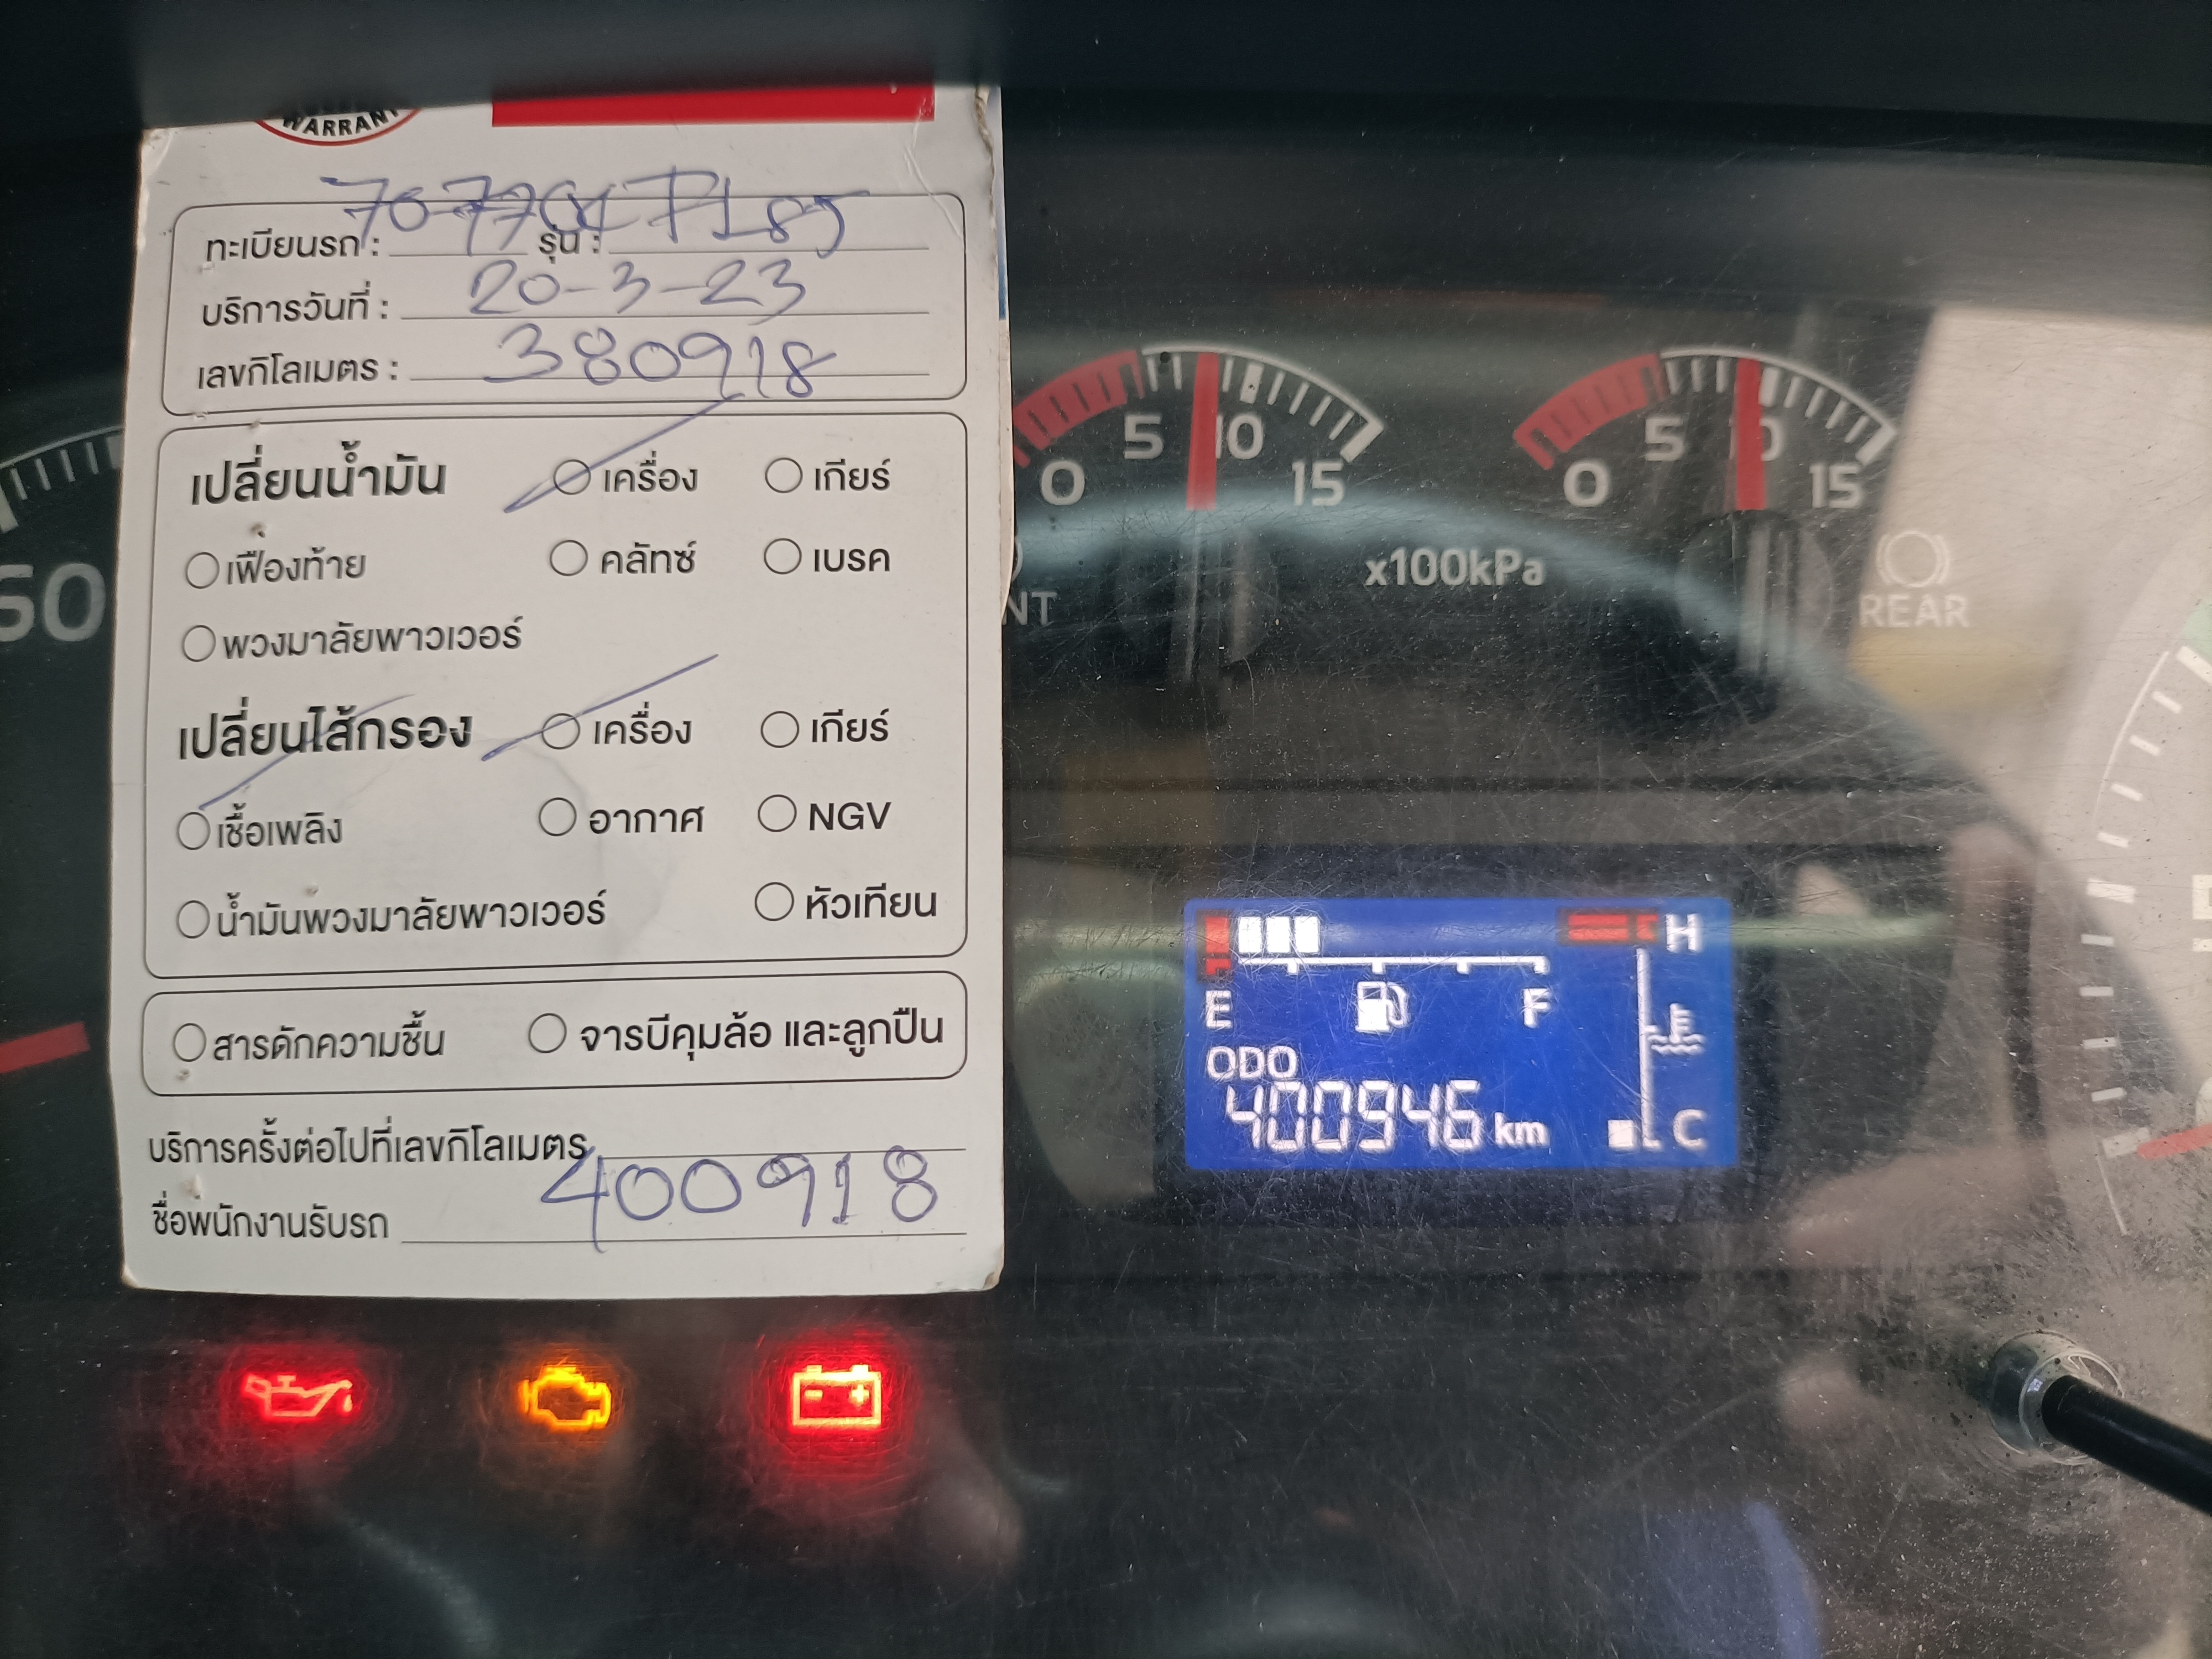 WARRANT
ทะเบียนรถ : 70-7701 รุ่น :
บริการวันที่ : 20-3-23
เลขกิโลเมตร : 380918
เปลี่ยนน้ำมัน เครื่อง เกียร์
เฟืองท้าย คลัทซ์ เบรค
พวงมาลัยพาวเวอร์
เปลี่ยนไส้กรอง เครื่อง เกียร์
เชื้อเพลิง อากาศ NGV
น้ำมันพวงมาลัยพาวเวอร์ หัวเทียน
สารดักความชื้น จารบีคุมล้อ และลูกปืน
บริการครั้งต่อไปที่เลขกิโลเมตร 400918
ชื่อพนักงานรับรถ
60
0 5 10 15
0 5 10 15
x100kPa
NT
REAR
H
E F
ODO
400946 km
C